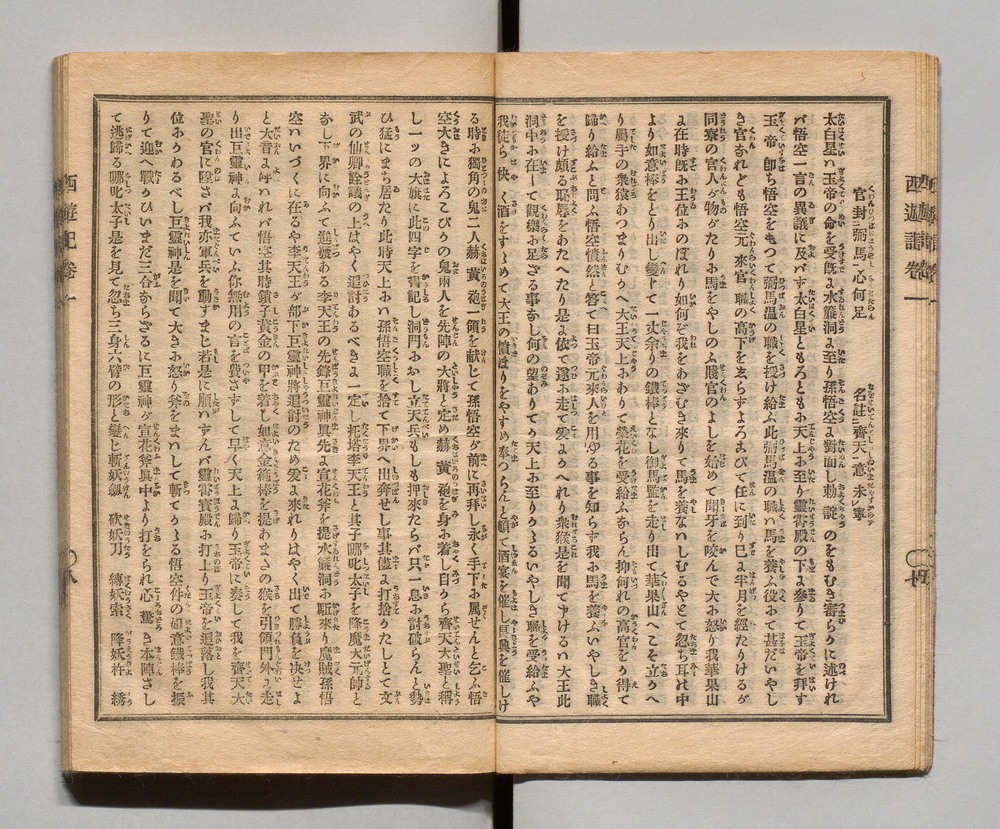 官封弼馬心何足　名註齊天意未寧
太白星ハ玉帝の命を受既よ水簾洞よ至り孫悟空よ對面し勅諚のをもむき審らかに述けれ
バ悟空一言の異議に及バず太白星ともろともふ天上ふ至り靈霄殿の下よ參りて玉帝を拜す
玉帝即ち悟空をもつて弼馬溫の職を授け給ふ此弼馬溫の職ハ馬を養ふ役ふて甚だいやし
き官なれども悟空元來官職の高下を玄らずよろこびて任に到り巳よ半月を經たりけるが
同寮の官人が物がたりふ馬をやしのふ賤官のよしを始めて聞牙を咬んで大ふ怒り我華果山
よ在時既ふ王位ふのぼれり如何ぞ我をあざむき來りて馬を養なハしむるやとて忽ち耳の中
より如意棒をとり出し變じて一丈余りの鐵棒となし御馬監を走り出て華果山へこそ立かへ
り屬手の衆猿あつまりむかへ大王天上ふありて榮花を受給ふならん抑何れの高官をか得て
歸り給ふと問ふ悟空憤然と答て曰玉帝元來人を用ゆる事を知らず我ふ馬を養ふいやしき職
を授け頗る耻辱をあたへたり是よ依て還ふ走て爰よかへれり衆猴是を聞て申けるハ大王此
洞中ふ在して觀樂ふ足ざる事なし何の望ありてか天上ふ至りかゝるいやしき職を受給ふや
我徒らハ快く酒をすゝめて大王の憤ほりをやすめ奉つらんと頓て酒宴を催し巨興を催しけ
る時ふ獨角の鬼王二人赫黃砲一領を献じて孫悟空が前に再拜し永く手下ふ属せんと乞ふ悟
空大きによろこびかの鬼兩人を先陣の大將と定め赫黃砲を身ふ着し自から齊天大聖と稱
し一ツの大旗に此四字を書記し洞門ふおし立天兵もし押來たらバ只一息ふ討破らんと勢
ひ猛にまち居たり此時天上ふハ孫悟空職を捨て下界へ出奔せし事其儘よ打捨かたしとて文
武の仙卿詮議の上はやく追討あるべきよ一定し托塔李天王と其子哪叱太子を降魔大元帥と
なし下界に向ふて進發ある李天王の先鋒巨靈神眞先よ宣花斧を提水簾洞ふ駈來り魔賊孫悟
空ハいづくに在るや李天王が部下巨靈神將追討のため爰よ來れりはやく出て勝負を决せよ
と大音よ呼ハれバ悟空其時鎖子黃金の甲を着し如意金箍棒を提あまさの猴を引領門外よ走
り出巨靈神よ向ふていふ你無用の言を費さずして早く天上よ歸り玉帝に奏して我を齊天大
聖の官に陞さバ我亦軍兵を動すまじ若是に順ハずんバ靈霄寶殿ふ打上り玉帝を追落し我其
位ふかわるべし巨靈神是を聞て大きふ怒り斧をまハして斬てかゝる悟空件の如意鐵棒を振
りて迎へ戰かひいまだ三合ならざるに巨靈神が宣花斧眞中より打をられ心驚き本陣さし
て逃歸る哪叱太子是を見て忽ち三身六臂の形と變じ斬妖劔　砍妖刀　縛妖索　降妖杵　綉
西遊記卷一
西遊記卷一
八